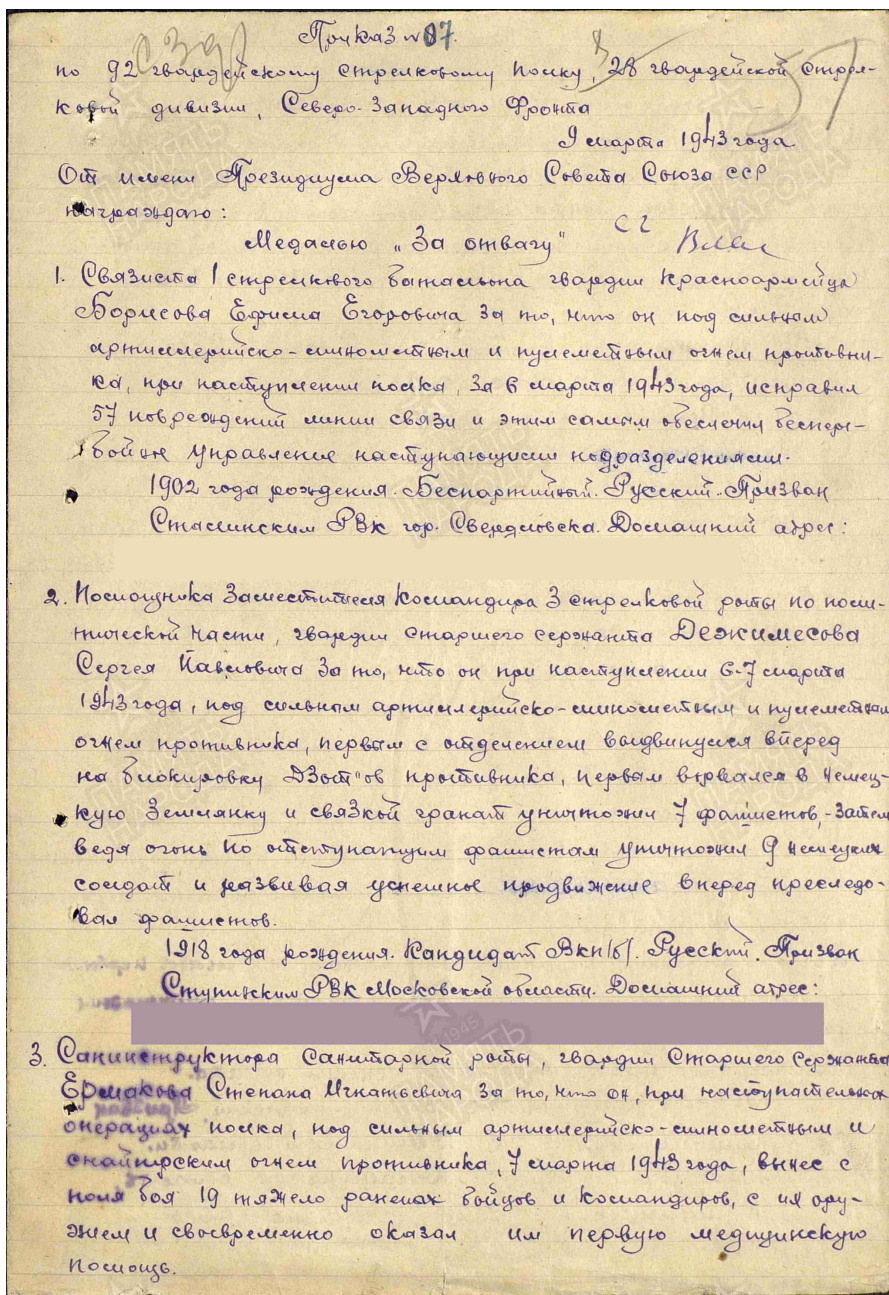 Приказ № 07.
по 92 гвардейскому стрелковому полку, 28 гвардейской стрел-
ковой дивизии, Северо-Западного Фронта
9 марта 1943 года
От имени Президиума Верховного Совета Союза ССР
награждаю:
Медалью „За отвагу"
1. Связиста 1 стрелкового батальона гвардии красноармейца
Борисова Ефима Егоровича за то, что он под сильным
артиллерийско-минометным и пулеметным огнем противни-
ка, при наступлении полка, за 6 марта 1943 года, исправил
57 повреждений линии связи и этим самым обеспечил беспере-
бойное управление наступающими подразделениями.
1902 года рождения. Беспартийный. Русский. Призван
Сталинским РВК гор. Свердловска. Домашний адрес:
2. Помощника Заместителя Командира 3 стрелковой роты по поли-
тической части, гвардии старшего сержанта Дежимесова
Сергея Павловича за то, что он при наступлении 6-7 марта
1943 года, под сильным артиллерийско-минометным и пулеметным
огнем противника, первым с отделением выдвинулся вперед
на блокировку ДЗот"ов противника, первым ворвался в немец-
кую землянку и связкой гранат уничтожил 7 фашистов,- затем
ведя огонь по отступающим фашистам уничтожил 9 немецких
солдат и развивая успешное продвижение вперед преследо-
вал фашистов.
1918 года рождения. Кандидат Вкп/б/. Русский. Призван
Ступинским РВК Московской области. Домашний адрес:
3. Санинструктора Санитарной роты, гвардии Старшего сержанта
Ермакова Степана Игнатьевича за то, что он, при наступательных
операциях полка, под сильным артиллерийско-минометным и
снайперским огнем противника, 7 марта 1943 года, вынес с
поля боя 19 тяжело раненых бойцов и командиров, с их ору-
жием и своевременно оказал им первую медицинскую
помощь.